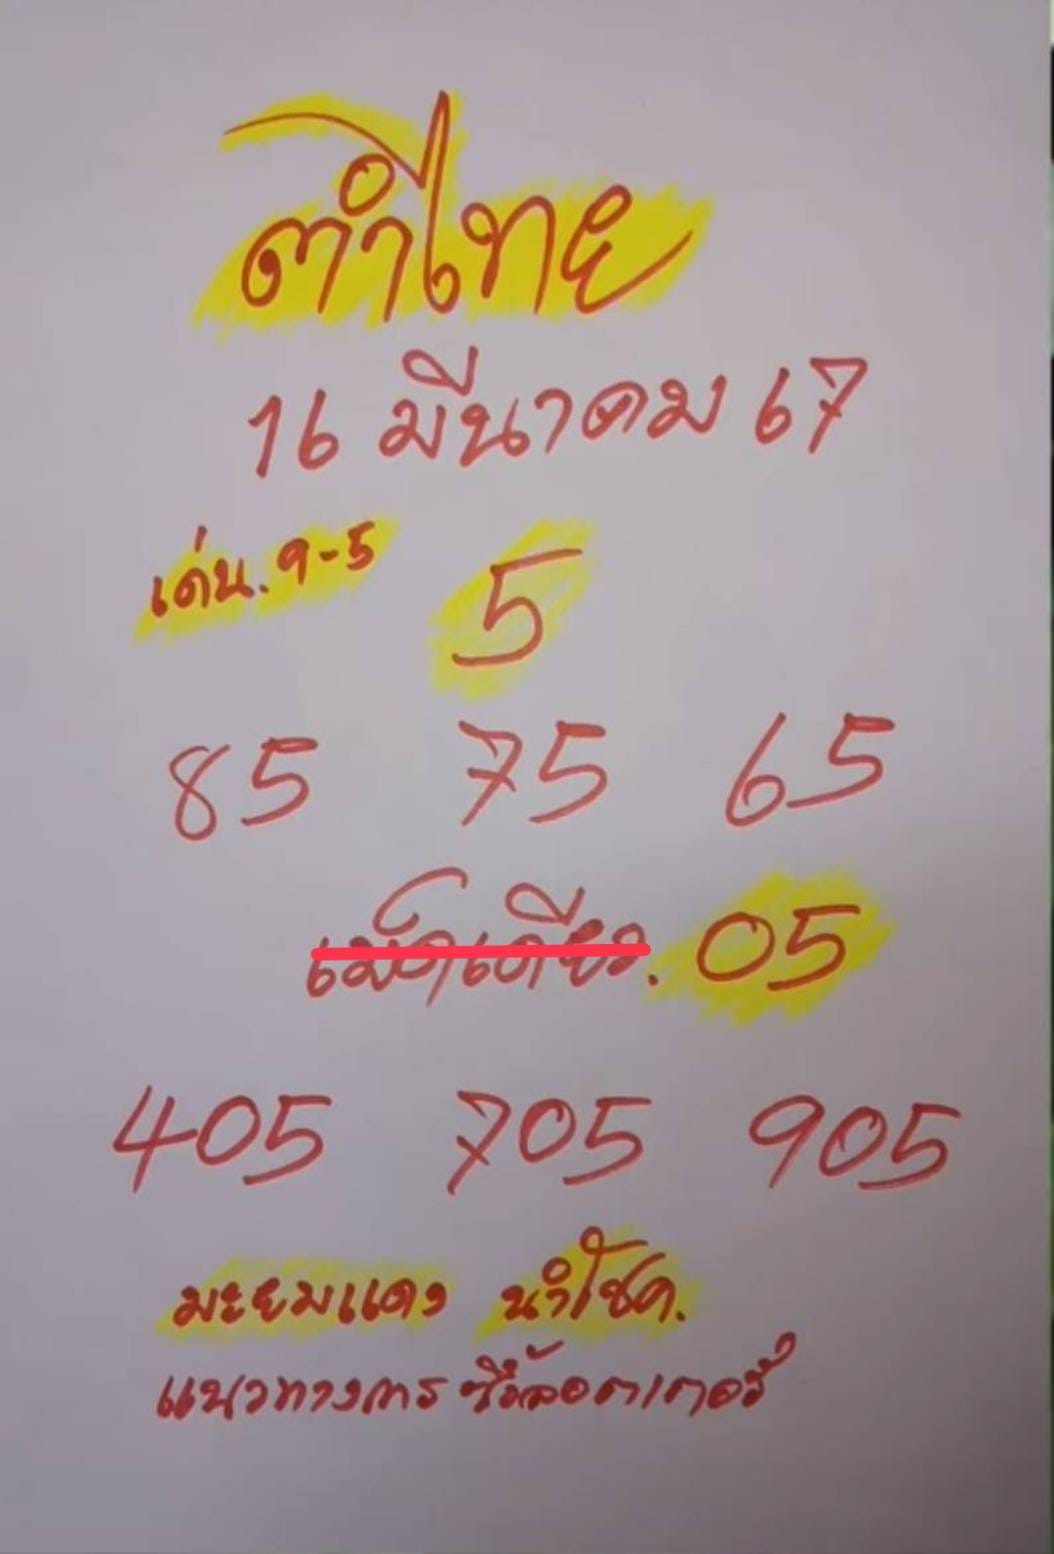 ตำไทย
16 มีนาคม 67
เด่น. 9-5
5
85 75 65
เม็ดเดียว. 05
405 705 905
มะยมแดง นำโชค.
แนวทางการซื้อล็อตเตอรี่